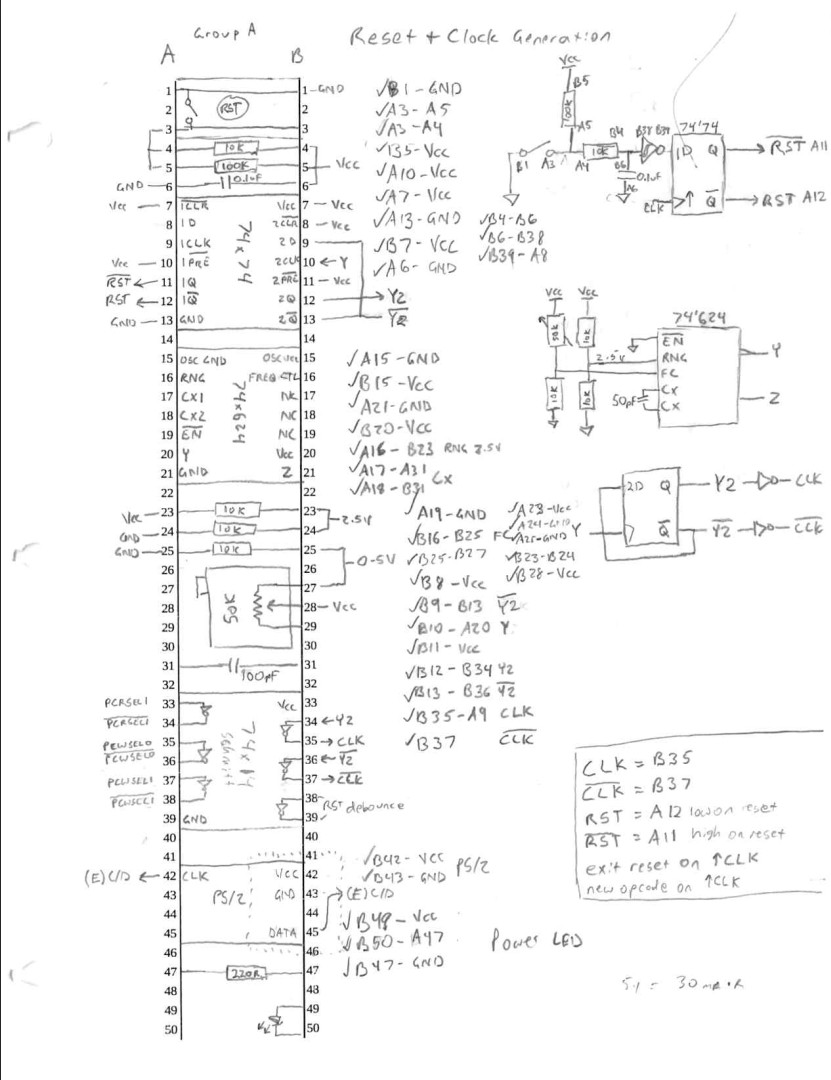 Group A
Reset + Clock Generation
A B
1 1 GND
2 RST 2
3 3
4 10K 4
5 100K 5 Vcc
GND 6 0.1uF 6
Vcc 7 1CLR Vcc 7 Vcc
8 1D 2CLR 8 Vcc
9 1CLK 2D 9
Vcc 10 1PRE 2CLK 10 ← Y
RST ← 11 1Q 2PRE 11 Vcc
RST ← 12 1Q 2Q 12 → Y2
GND 13 GND 2Q 13 Y2
74x74
14 14
15 OSC GND OSC Vcc 15
16 RNG FREQ CTL 16
17 CX1 NC 17
18 CX2 NC 18
19 EN NC 19
20 Y Vcc 20
21 GND Z 21
74x624
22 22
Vcc 23 10K 23
2.5V
GND 24 10K 24
GND 25 10K 25
0-5V
26 26
27 27
28 50K 28 Vcc
29 29
30 30
31 100pF 31
32 32
PCRSEL1 33 Vcc 33
PCRSEL1 34 34 ← Y2
PCWSEL0 35 35 → CLK
PCWSEL0 36 36 ← Y2
PCWSEL1 37 37 → CLK
PCWSEL1 38 38 RST debounce
39 GND 39
74x14
Schmitt
40 40
41 41
(E)C/D ← 42 CLK VCC 42
43 PS/2 GND 43 (E)C/D
44 44
45 DATA 45
46 46
47 220R 47
48 48
49 49
50 50
√B1 - GND
√A3 - A5
√A3 - A4
√B5 - Vcc
√A10 - Vcc
√A7 - Vcc
√A13 - GND √B4 - B6
√B7 - Vcc √B6 - B38
√A6 - GND √B39 - A8
√A15 - GND
√B15 - Vcc
√A21 - GND
√B20 - Vcc
√A16 - B23 RNG 2.5V
√A17 - A31
√A18 - B31 Cx
√A19 - GND √A23 - Vcc
√A24 - GND
√B16 - B25 FC √A25 - GND
√B25 - B27 √B23 - B24
√B8 - Vcc √B28 - Vcc
√B9 - B13 Y2
√B10 - A20 Y
√B11 - Vcc
√B12 - B34 Y2
√B13 - B36 Y2
√B35 - A9 CLK
√B37 CLK
√B42 - VCC PS/2
√B43 - GND
√B48 - Vcc
√B50 - A47 Power LED
√B47 - GND
Vcc
B5
100K
A5
B1 A3 A4 10K B4 B38 B39
B6 0.1uF
A6
74'74
1D Q RST A11
CLK Q RST A12
Vcc Vcc
50K 10K
2.5V
10K 10K
74'624
EN
RNG Y
FC
50pF Cx Z
Cx
2D Q Y2 CLK
Y Q Y2 CLK
CLK = B35
CLK = B37
RST = A12 low on reset
RST = A11 high on reset
exit reset on ↑CLK
new opcode on ↑CLK
5V = 30mA·R